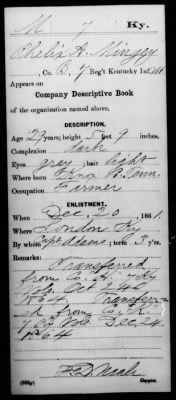 M 7 Ky.
Co. B, 7 Reg't Kentucky Inf.
Appears on
Company Descriptive Book
of the organization named above.
DESCRIPTION.
Age 27 years; height 5 feet 9 inches.
Complexion Dark
Eyes gray; hair light
Where born Tenn.
Occupation Farmer
ENLISTMENT.
When Dec. 20, 1861.
Where London Ky
By whom Capt Adams; term 3 y'rs.
Remarks: Transferred
from Co. H.
Oct 24
1864 Transferr-
ed from Co.
Vols. Dec. 24
1864
Copyist.